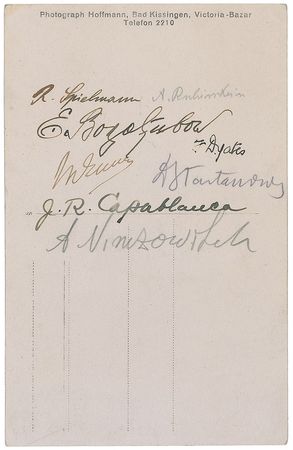 Photograph Hoffmann, Bad Kissingen, Victoria-Bazar
Telefon 2210
R. Spielmann A. Rubinstein
E. Bogoljubow
Yates
Tartakower
J. R. Capablanca
A Nimzowitsch